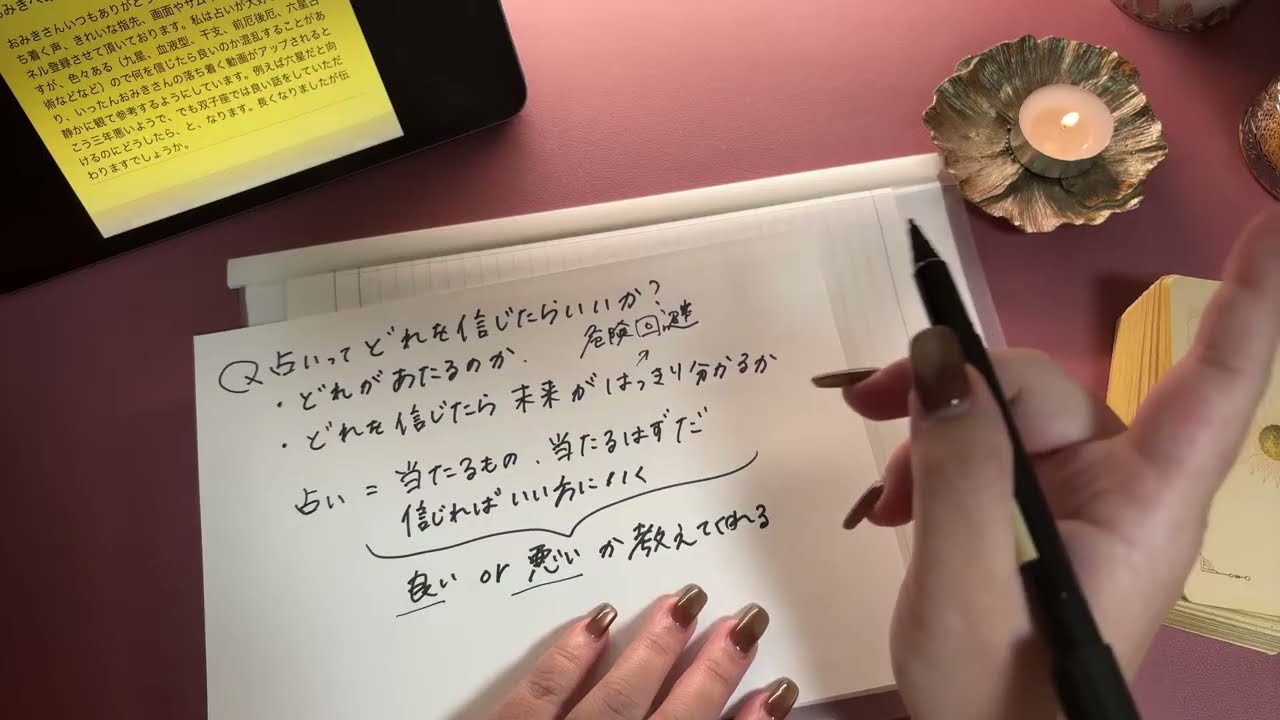 おみきさんいつもありがとう
ち着く声、きれいな指先、画面やサム
ネル登録させて頂いております。私は占いが大好
すが、色々ある（九星、血液型、干支、前厄後厄、六星占
術などなど）ので何を信じたら良いのか混乱することがあ
り、いったんおみきさんの落ち着く動画がアップされると
静かに観て参考するようにしています。例えば六星だと向
こう三年悪いようで、でも双子座では良い話をしていただ
けるのにどうしたら、と、なります。長くなりましたが伝
わりますでしょうか。
Q 占いって どれを信じたらいいか？
・どれがあたるのか．
危険回避
・どれを信じたら 未来がはっきり分かるか
占い = 当たるもの、当たるはずだ
信じればいい方にいく
良い or 悪い か教えてくれる